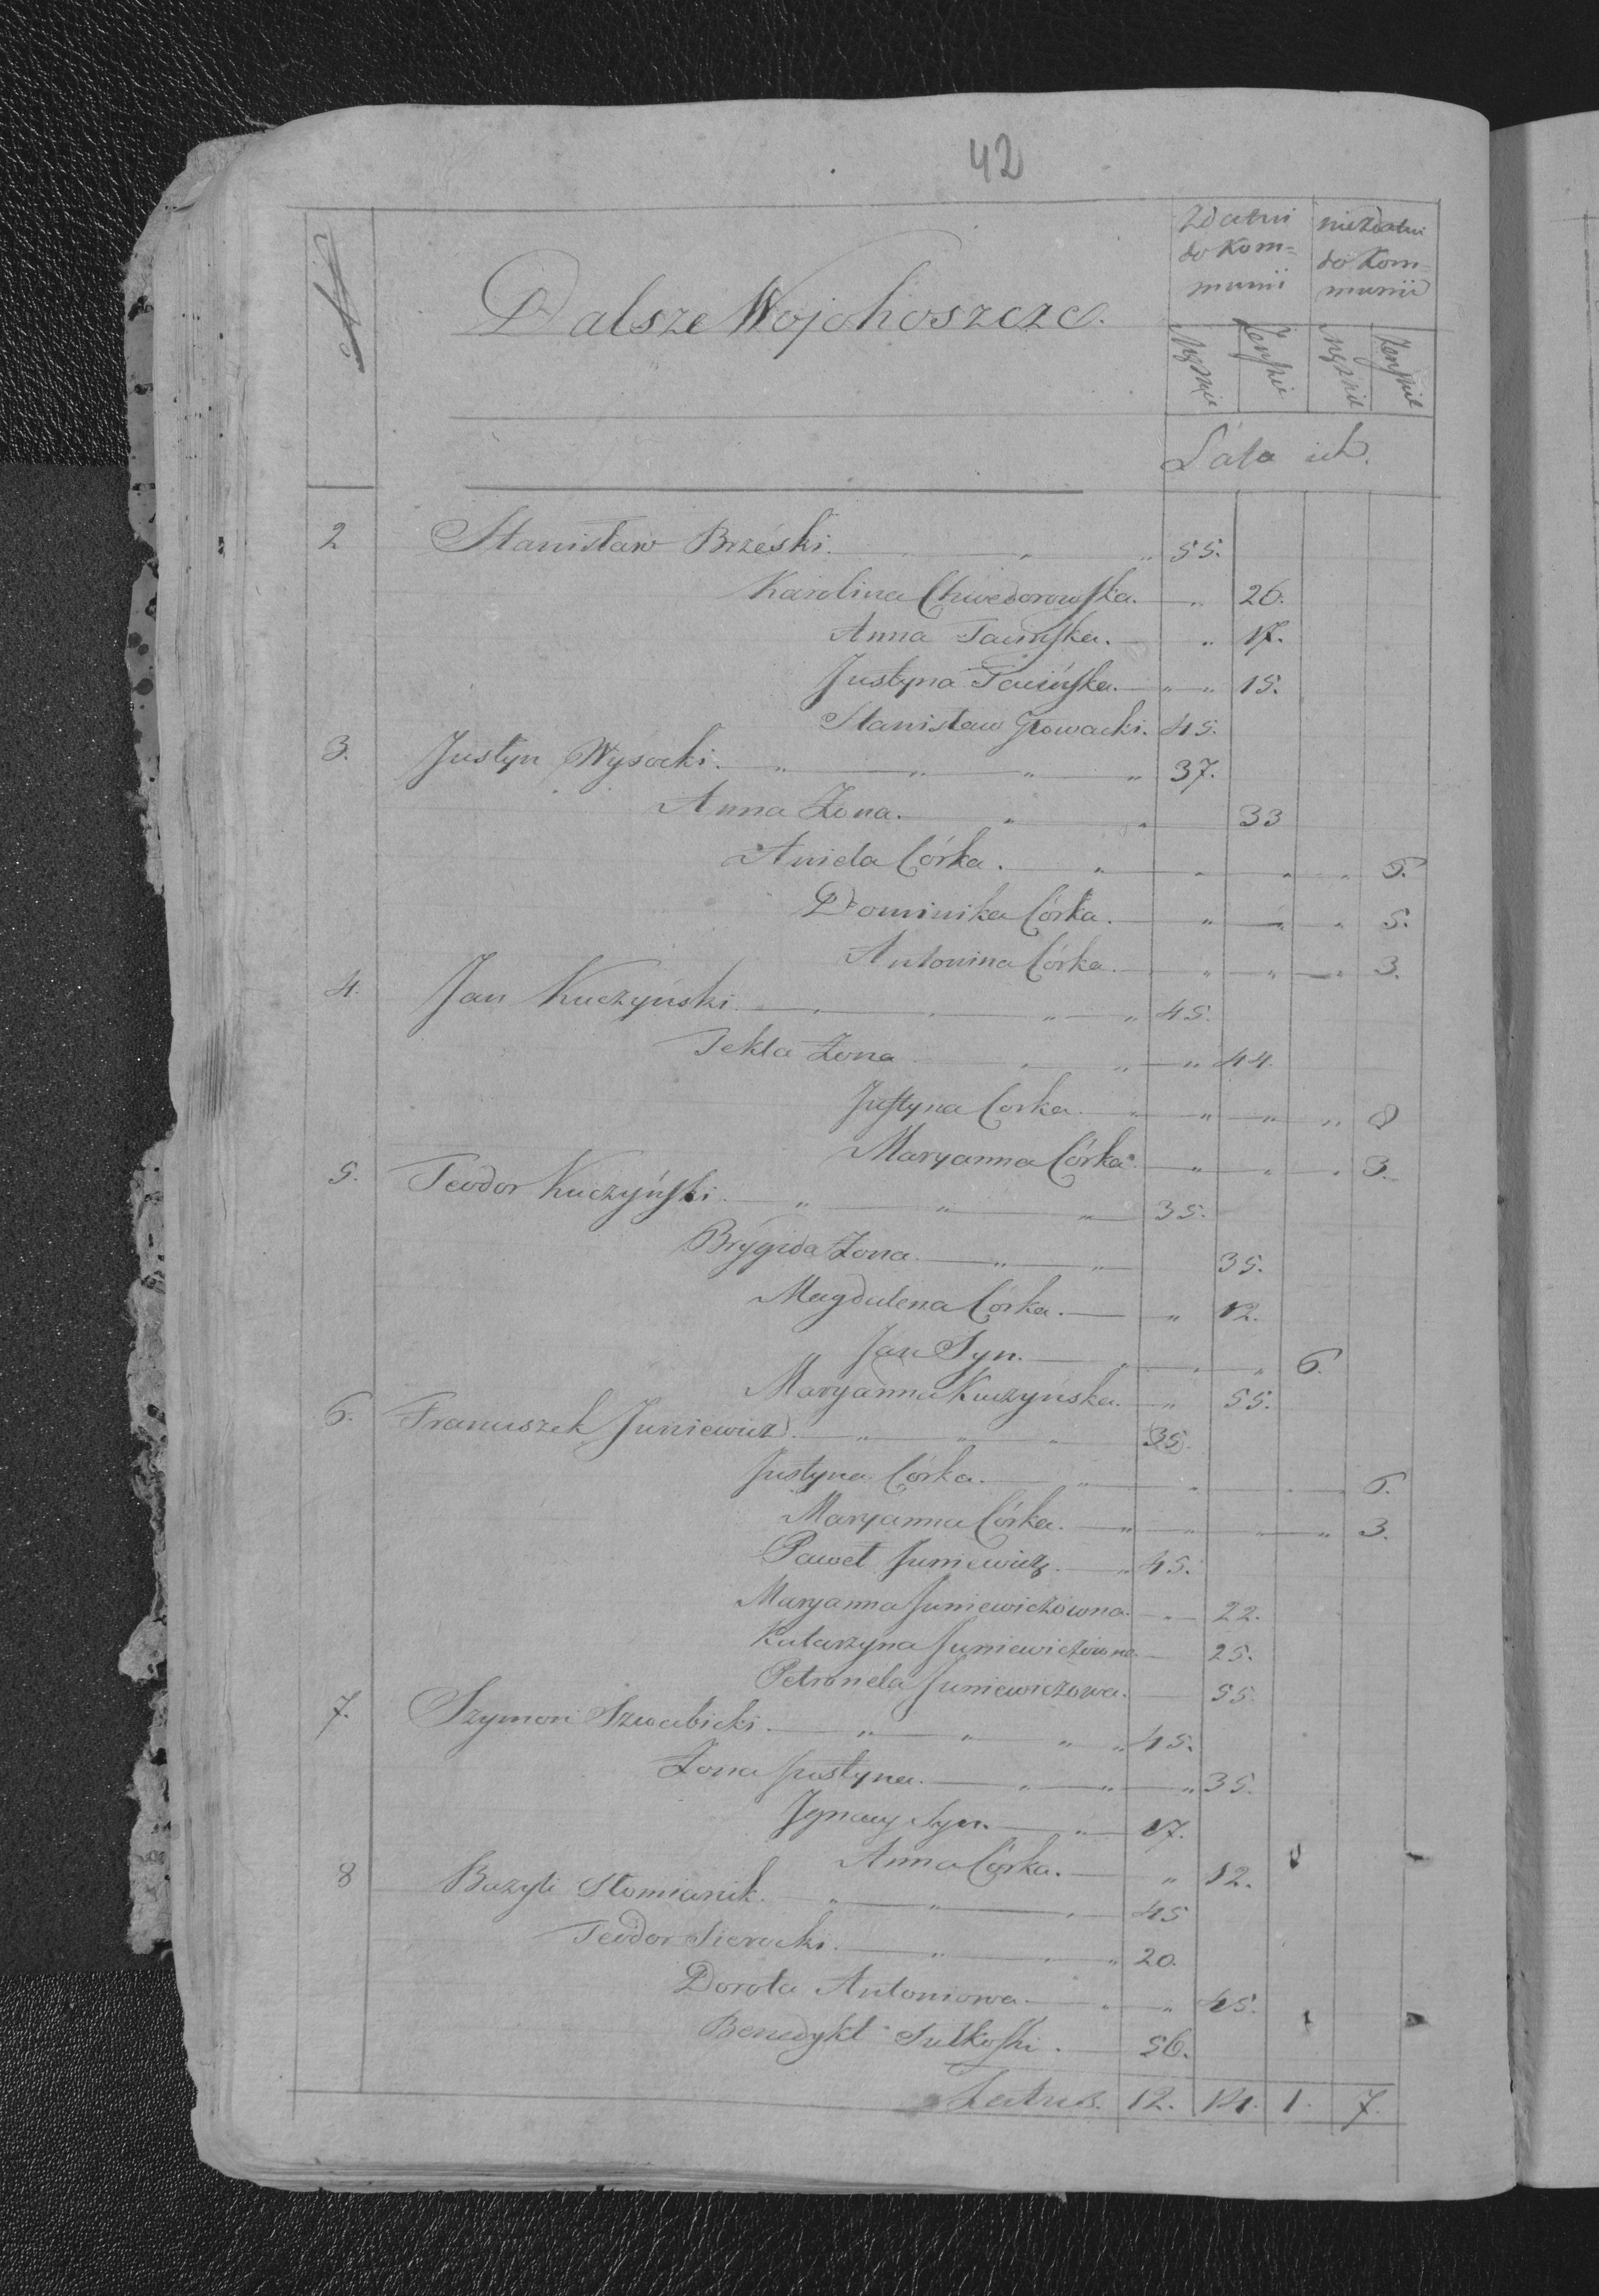 42
Zdatni do Kom=munii niezdatni do Kom=munii
Dalsze Wojohoszcze.
Męzkie Żeńskie męzkie żeńskie
Lata ich.
2 Stanisław Brzeski. " " 55.
Karolina Chwedorowska. " 26.
Anna " 17.
Justyna " " 15.
Stanisław Głowacki. 45.
3. Justyn Wysocki. " " " " 37.
Anna Żona. " " 33
Aniela Córka. " " " " 6.
Dominika Córka. " " " 5.
Antonina Córka. " " " 3.
4. Jan Kuczyński " " " " 45.
Tekla Żona " " " 44.
Justyna Corka. " " " " 8
Maryanna Córka. " " " 3.
5. Teodor Kuczyński. " " " 35.
Brygida Żona. " " 35.
Magdalena Córka. " 12.
Jan Syn. " " " 6.
Maryanna Kuczyńska. " 55.
6. Franciszek Juniewicz. " " " 35.
Justyna Córka. " " " 6.
Maryanna Córka. " " " " 3.
Paweł Juniewicz. " 45.
Maryanna Juniewiczówna. " 22.
Katarzyna Juniewiczówna 25.
Petronela Juniewiczowa. 55.
7. Szymon Szwabicki. " " " " 45.
Żona Justyna. " " " 35.
Ignacy Syn. " 17.
Anna Córka. " 12.
8 Bazyli Słomianik. " " " 45
Teodor Sierocki. " " " 20.
Dorota Antoniowa. " " 45.
Benedykt Sutkoski. 56.
Latus. 12. 14. 1. 7.